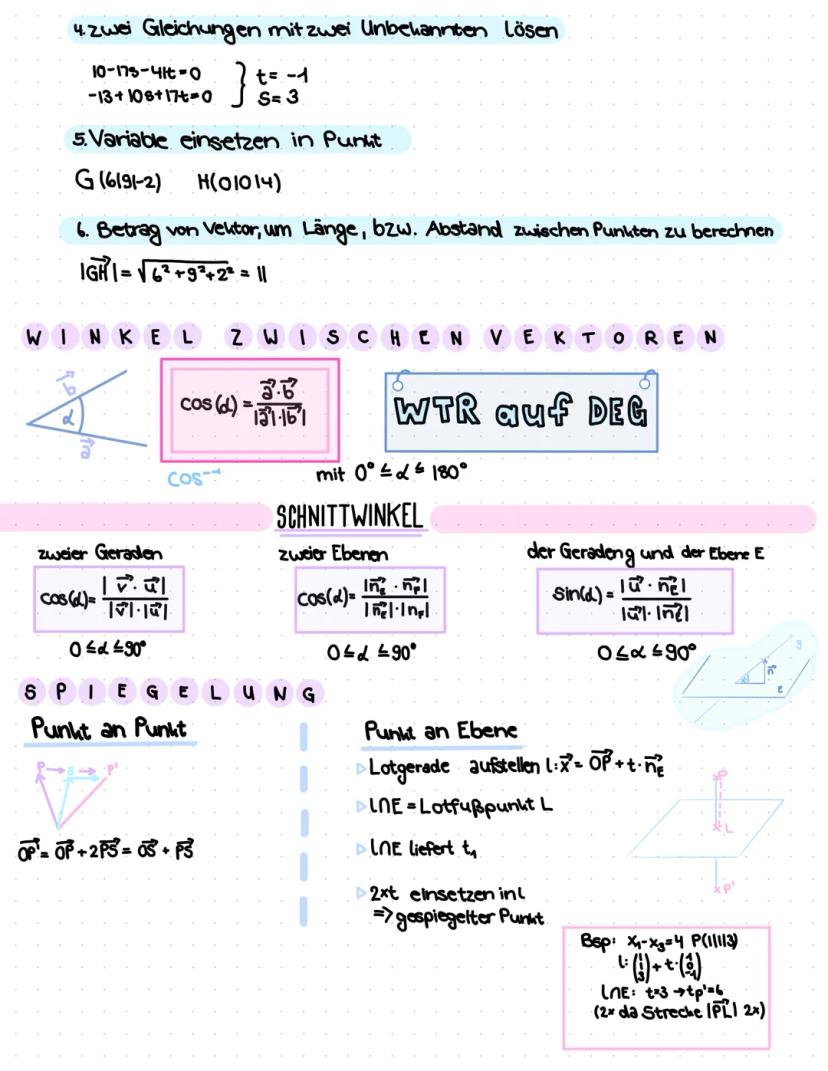 4. zwei Gleichungen mit zwei Unbekannten lösen
10-17s-41t=0 } t= -1
-13+10s+17t=0 } s= 3
5. Variable einsetzen in Punkt
G(6|9|-2) H(0|0|4)
6. Betrag von Vektor, um Länge, bzw. Abstand zwischen Punkten zu berechnen
|GH| = √6²+9²+2² = 11
WINKEL ZWISCHEN VEKTOREN
b
α
a
cos(α) = a·b / |a|·|b|
WTR auf DEG
cos⁻¹
mit 0° ≤ α ≤ 180°
SCHNITTWINKEL
zweier Geraden
cos(α) = |v·u| / |v|·|u|
0 ≤ α ≤ 90°
zweier Ebenen
cos(α) = |n_E · n_F| / |n_E|·|n_F|
0 ≤ α ≤ 90°
der Geraden g und der Ebene E
sin(α) = |u · n_E| / |u|·|n_E|
0 ≤ α ≤ 90°
g
n
E
SPIEGELUNG
Punkt an Punkt
P S P'
OP' = OP + 2PS = OS + PS
Punkt an Ebene
Lotgerade aufstellen l: x = OP + t·n_E
l∩E = Lotfußpunkt L
l∩E liefert t₁
2xt einsetzen in l
=> gespiegelter Punkt
P
L
P'
Bsp: x₁-x₃=4 P(1|1|3)
l: (1 1 3) + t·(1 0 -1)
l∩E: t=3 → tp'=6
(2x da Strecke |PL| 2x)